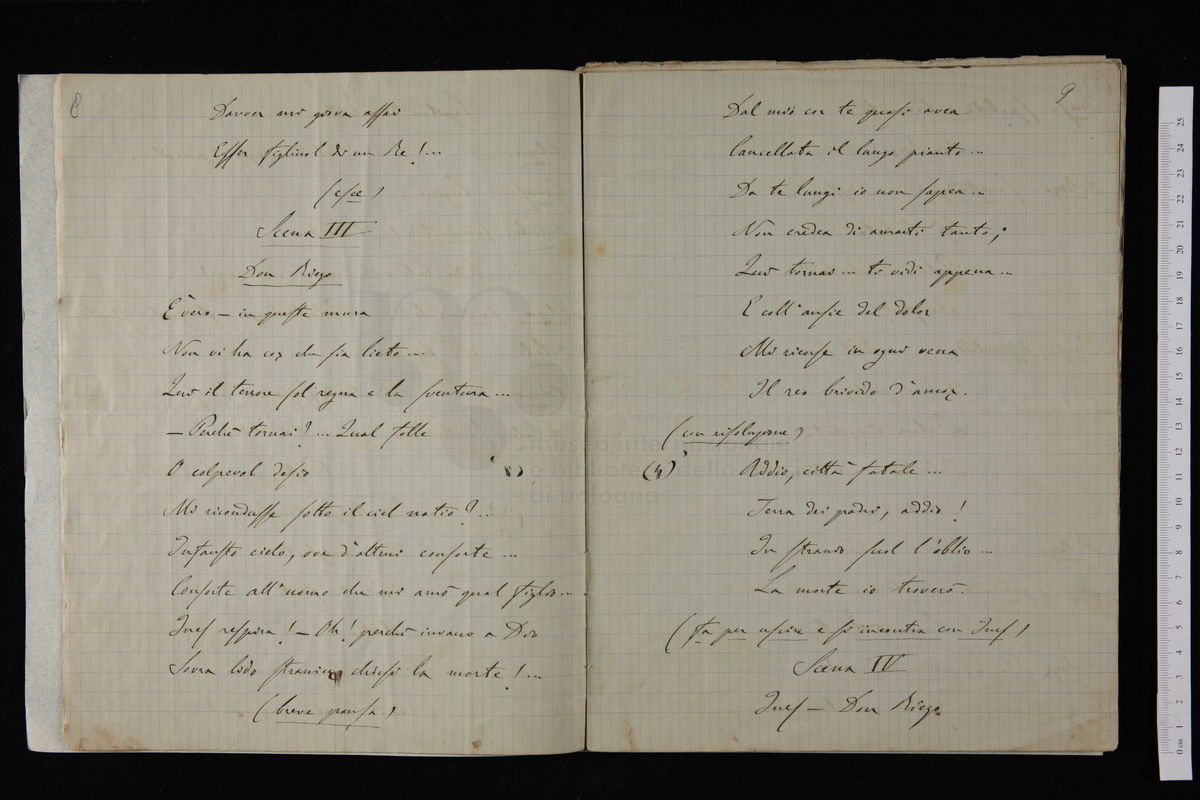 8
Davver mi giova assai
Esser figliuol di un Re!...
(esce)
Scena III
Don Riego
È vero — in queste mura
Non vi ha cor che sia lieto...
Qui il terrore sol regna e la sventura...
— Perchè tornai?... Qual folle
O colpevol desio
Mi ricondusse sotto il ciel natio?...
Infausto cielo, ove d'altrui consorte...
Consorte all'uomo che mi amò qual figlio...
Ines respira! — Oh! perchè invano a Dio
Sovra lido straniero chiesi la morte!...
(breve pausa)
9
Dal mio cor te quasi avea
Cancellata il lungo pianto...
Da te lungi io non sapea...
Non credea di amarti tanto;
Qui tornai... ti vidi appena...
E coll'ansie del dolor
Mi ricorse in ogni vena
Il reo brivido d'amor.
(con risoluzione)
(4) Addio, città fatale...
Terra dei padri, addio!
In stranio suol l'oblio...
La morte io troverò.
(fa per uscire e si incontra con Ines)
Scena IV
Ines — Don Riego
museo
e biblioteca della
di bologna